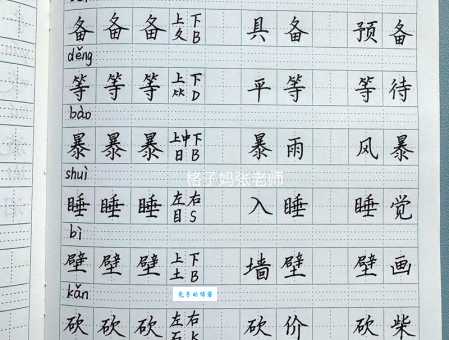 备 备 备 上下 夂 B 具 备 预 备
děng
等 等 等 上下 ⺮ D 平 等 等 待
bào
暴 暴 暴 上中下 日 B 暴 雨 风 暴
shuì
睡 睡 睡 左右 目 S 入 睡 睡 觉
格子妈张老师
bì
壁 壁 壁 上下 土 B 墙 壁 壁 画
kǎn
砍 砍 砍 左右 石 K 砍 价 砍 柴